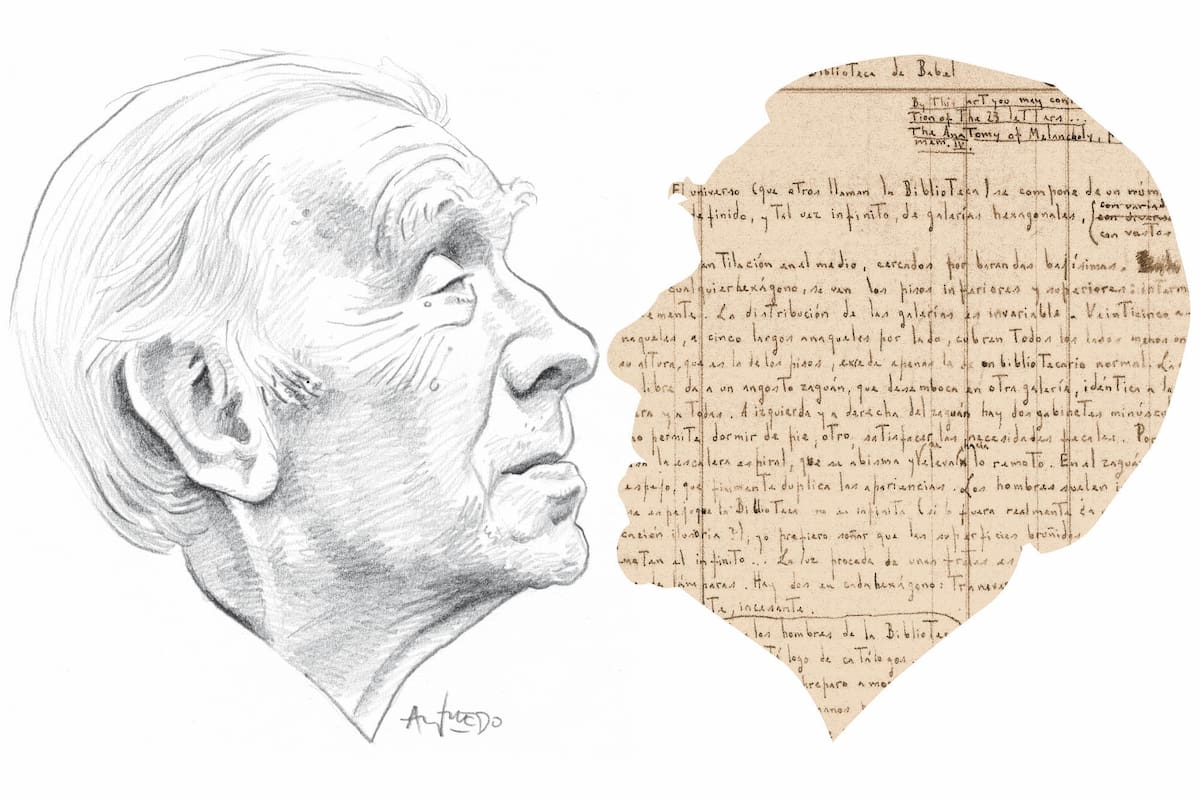 Biblioteca de Babel
By This art you may con
Tion of The 23 letters...
The Anatomy of Melancholy,
mem. IV.
El universo (que otros llaman la Biblioteca) se compone de un núm
efinido, y Tal vez infinito, de galerías hexagonales,
con varia
con diverso
con vastos
enTilación en el medio, cercados por barandas bajísimas.
cualquier hexágono, se ven los pisos inferiores y superiores: inTerm
emente. La distribución de las galerías es invariable. VeinTicinco a
naqueles, a cinco largos anaqueles por lado, cubren Todos los lados menos
su alTura, que es la de los pisos, excede apenas la de un bibliotecario normal. La
libre da a un angosto zaguán, que desemboca en otra galería, idéntica a la
era y a Todas. A izquierda y a derecha del zaguán hay dos gabineTes minúsc
no permite dormir de pie; otro, satisfacer las necesidades fecales. Por
la escalera espiral, que se abisma y se eleva hacia lo remoto. En el zaguá
espejo, que fielmente duplica las apariencias. Los hombres suelen i
ese espejo que la Biblioteca no es infinita (si lo fuera realmente ¿a
cación ilusoria?), yo prefiero soñar que las superficies bruñidas
meTan el infiniTo... La luz procede de unas frutas es
lámparas. Hay dos en cada hexágono: Transve
Te, incesante.
los hombres de la Biblioteca
Tálogo de caTálogos.
preparo a mo
manos
ALFREDO